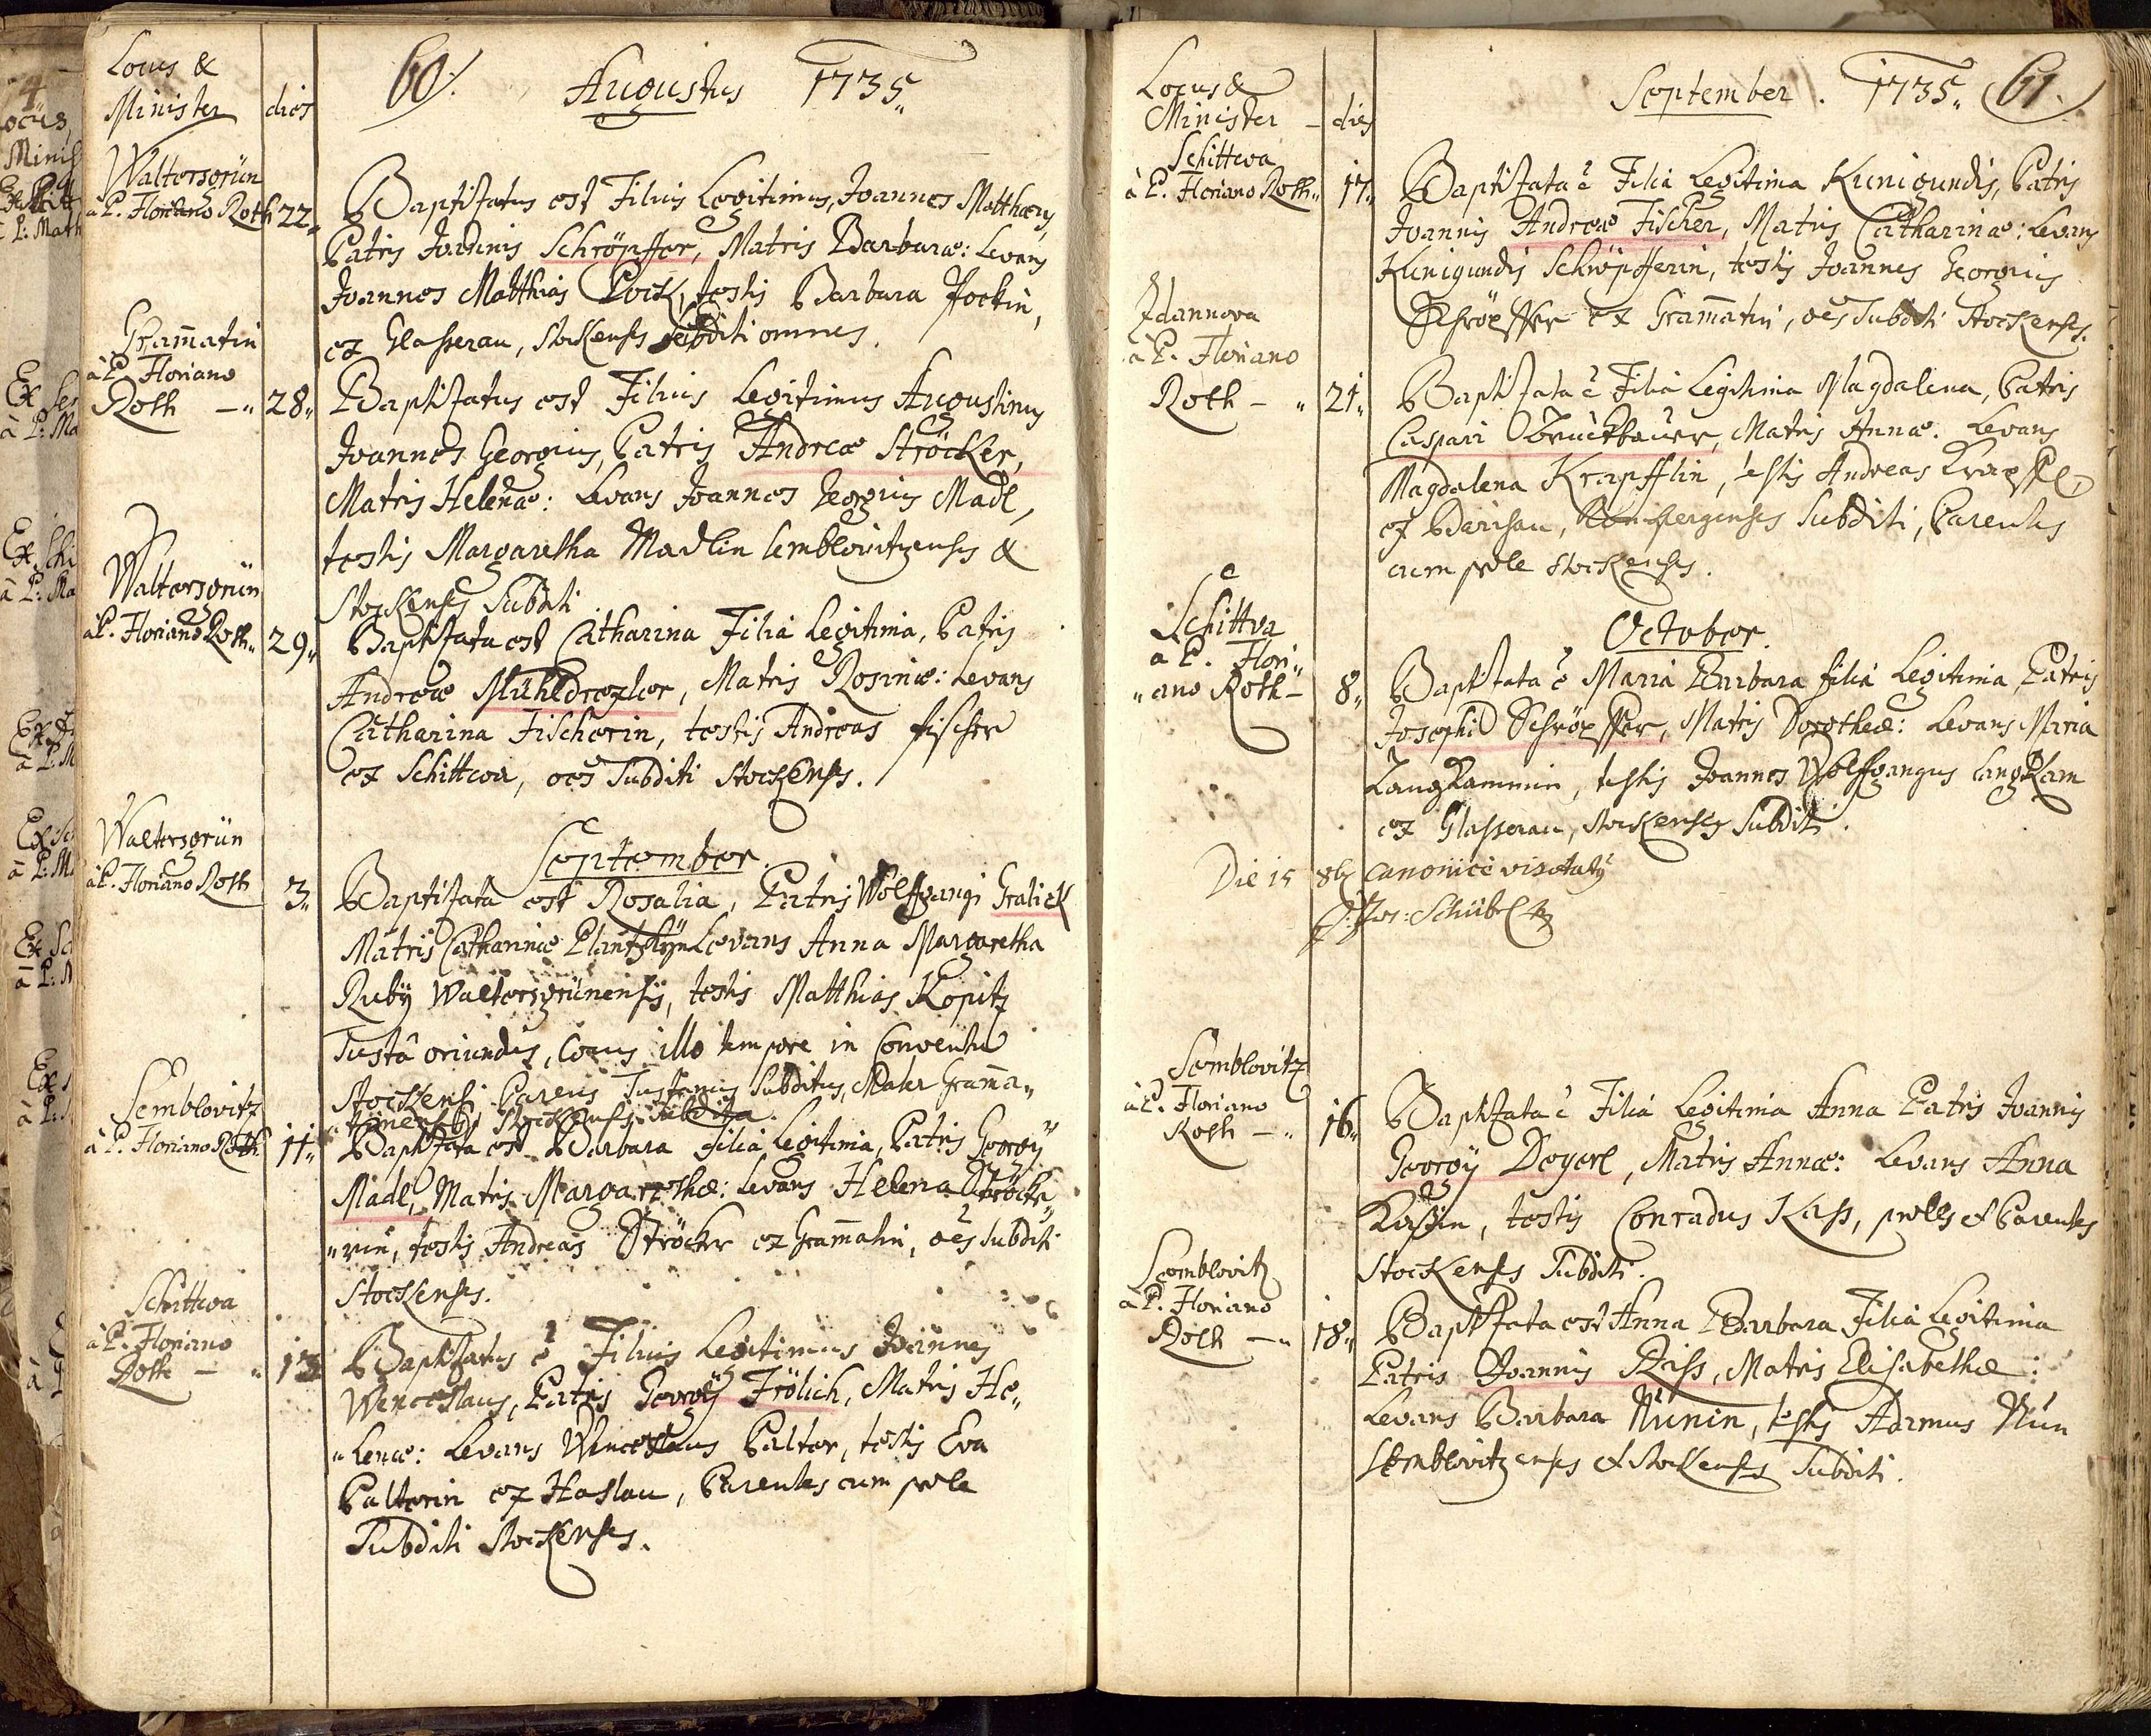 Locus &
Minister dies
60. Augustus 1735
Waltersgrün
à P. Floriano Roth 22
Baptisatus est Filius Legitimus, Joannes Matthæus,
Patris Joannis Schröpffer, Matris Barbaræ: Levans
Joannes Matthias Pock, testis Barbara Pockin,
ex Glasserau, stockenses subditi omnes.
Gram̄atin
à P. Floriano
Roth — " 28"
Baptisatus est Filius Legitimus Augustinus
Joannes Georgius, Patris Andreæ Ströcker,
Matris Helenæ: Levans Joannes Georgius Madl,
testis Margaretha Madlin semblovitzenses &
Stockenses Subditi
Waltersgrün
à P. Floriano Roth" 29"
Baptisata est Catharina Filia Legitima, Patris
Andreæ Mühldrexler, Matris Rosinæ: Levans
Catharina Fischerin, testis Andreas fischer
ex Schittwa, oēs Subditi Stockenses.
September.
Waltersgrün
à P. Floriano Roth 3"
Baptisata est Rosalia, Patris Wolffgangi Gralick
Matris Catharinæ Levans Anna Margaretha
Ruby Waltersgrünensis, testis Matthias Kopitz
Tustâ oriundus, Cocus illo tempore in Conventu
Stockensi Parens Tustanus Subditus, Mater Gram̄a"
"tinensis Stockensis Subdita.
Semblovitz
à P. Floriano Roth 11"
Baptisata est Barbara filia Legitima, Patris Georgÿ
Madl, Matris Margarethæ: Levans Helena Ströcke"
"rin, testis Andreas Ströcker ex Gram̄atin, oēs subditi
Stockenses.
Schittwa
à P. Floriano
Roth — " 13
Baptisatus ē Filius Legitimus Joannes
Wenceslaus, Patris Georgÿ Frölich, Matris He"
"lenæ: Levans Wenceslaus Palter, testis Eva
Palterin ex Haslau, Parentes cum prole
Subditi Stockenses.
Locus &
Minister — dies
September. 1735" 61.
Schittwa
à P. Floriano Roth" 17"
Baptisata ē Filia Legitima Kunigundis, Patris
Joannis Andreæ Fischer, Matris Catharinæ: Levans
Kunigundis Schröpfferin, testis Joannes Georgius
Schröpffer ex Gram̄atin, oēs Subditi Stockenses.
Zdannova
à P. Floriano
Roth — " 21"
Baptisata ē Filia Legitima Magdalena, Patris
Caspari Bruckbauer, Matris Annæ. Levans
Magdalena Krapfflin, testis Andreas Krapffl,
ex Subditi, Parentes
cum prole Stockenses.
October.
Schittva
à P. Flori"
"ano Roth — 8"
Baptisata ē Maria Barbara filia Legitima, Patris
Josephi Schröpffer, Matris Dorotheæ: Levans Maria
Langkammin, testis Joannes Wolffgangus Langkam
ex Glasserau, stockenses Subditi.
Die 15 8br canonicè visitatÿ
Jos: Schübel
Semblovitz
à P. Floriano
Roth — " 16"
Baptisata ē Filia Legitima Anna Patris Joannis
Georgÿ Deyerl, Matris Annæ: Levans Anna
testis Conradus Kass, proles et Parentes
Stockenses Subditi.
Semblovitz
à P. Floriano
Roth — " 18"
Baptisata est Anna Barbara Filia Legitima
Patris Joannis Riss, Matris Elisabethæ:
Levans Barbara Nunin, testis Adamus Nun
semblovitzenses et stockenses Subditi.